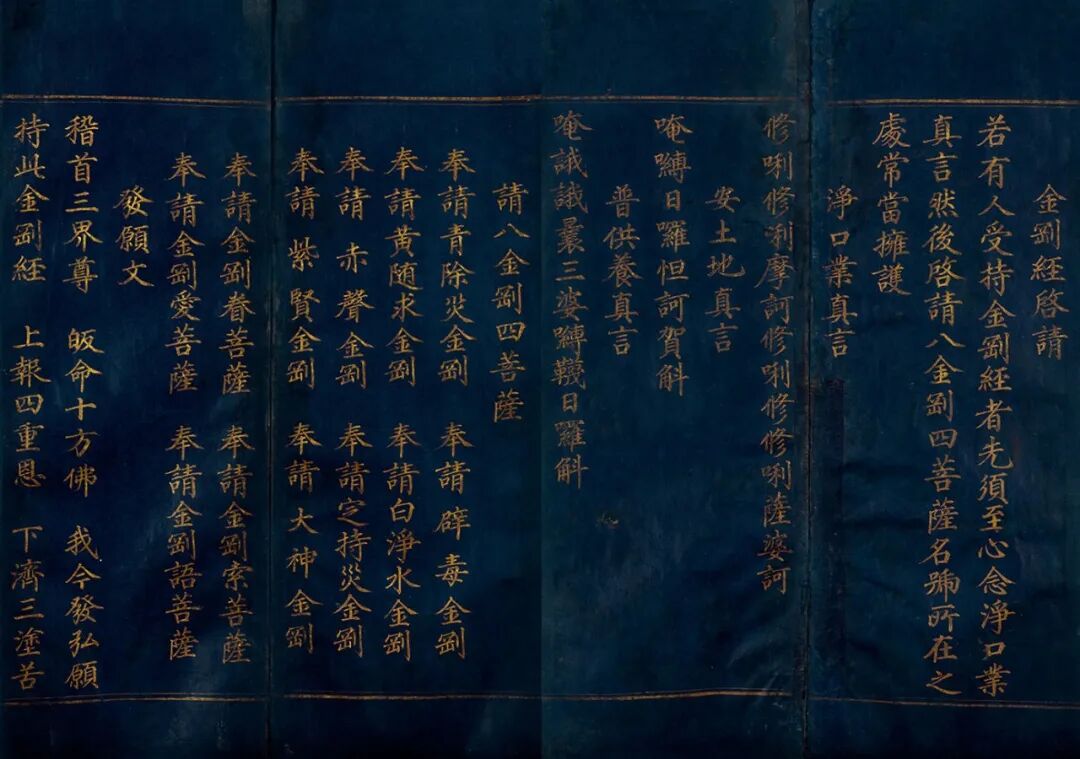 金剛經啓請
若有人受持金剛經者先須至心念淨口業
真言然後啓請八金剛四菩薩名號所在之
處常當擁護
淨口業真言
修唎修唎摩訶修唎修修唎薩婆訶
安土地真言
唵嚩日囉怛訶賀斛
普供養真言
唵誐誐曩三婆嚩韈日羅斛
請八金剛四菩薩
奉請青除災金剛 奉請辟毒金剛
奉請黄随求金剛 奉請白淨水金剛
奉請赤聲金剛 奉請定持災金剛
奉請紫賢金剛 奉請大神金剛
奉請金剛眷菩薩 奉請金剛索菩薩
奉請金剛愛菩薩 奉請金剛語菩薩
發願文
稽首三界尊 皈命十方佛 我今發弘願
持此金剛經 上報四重恩 下濟三塗苦